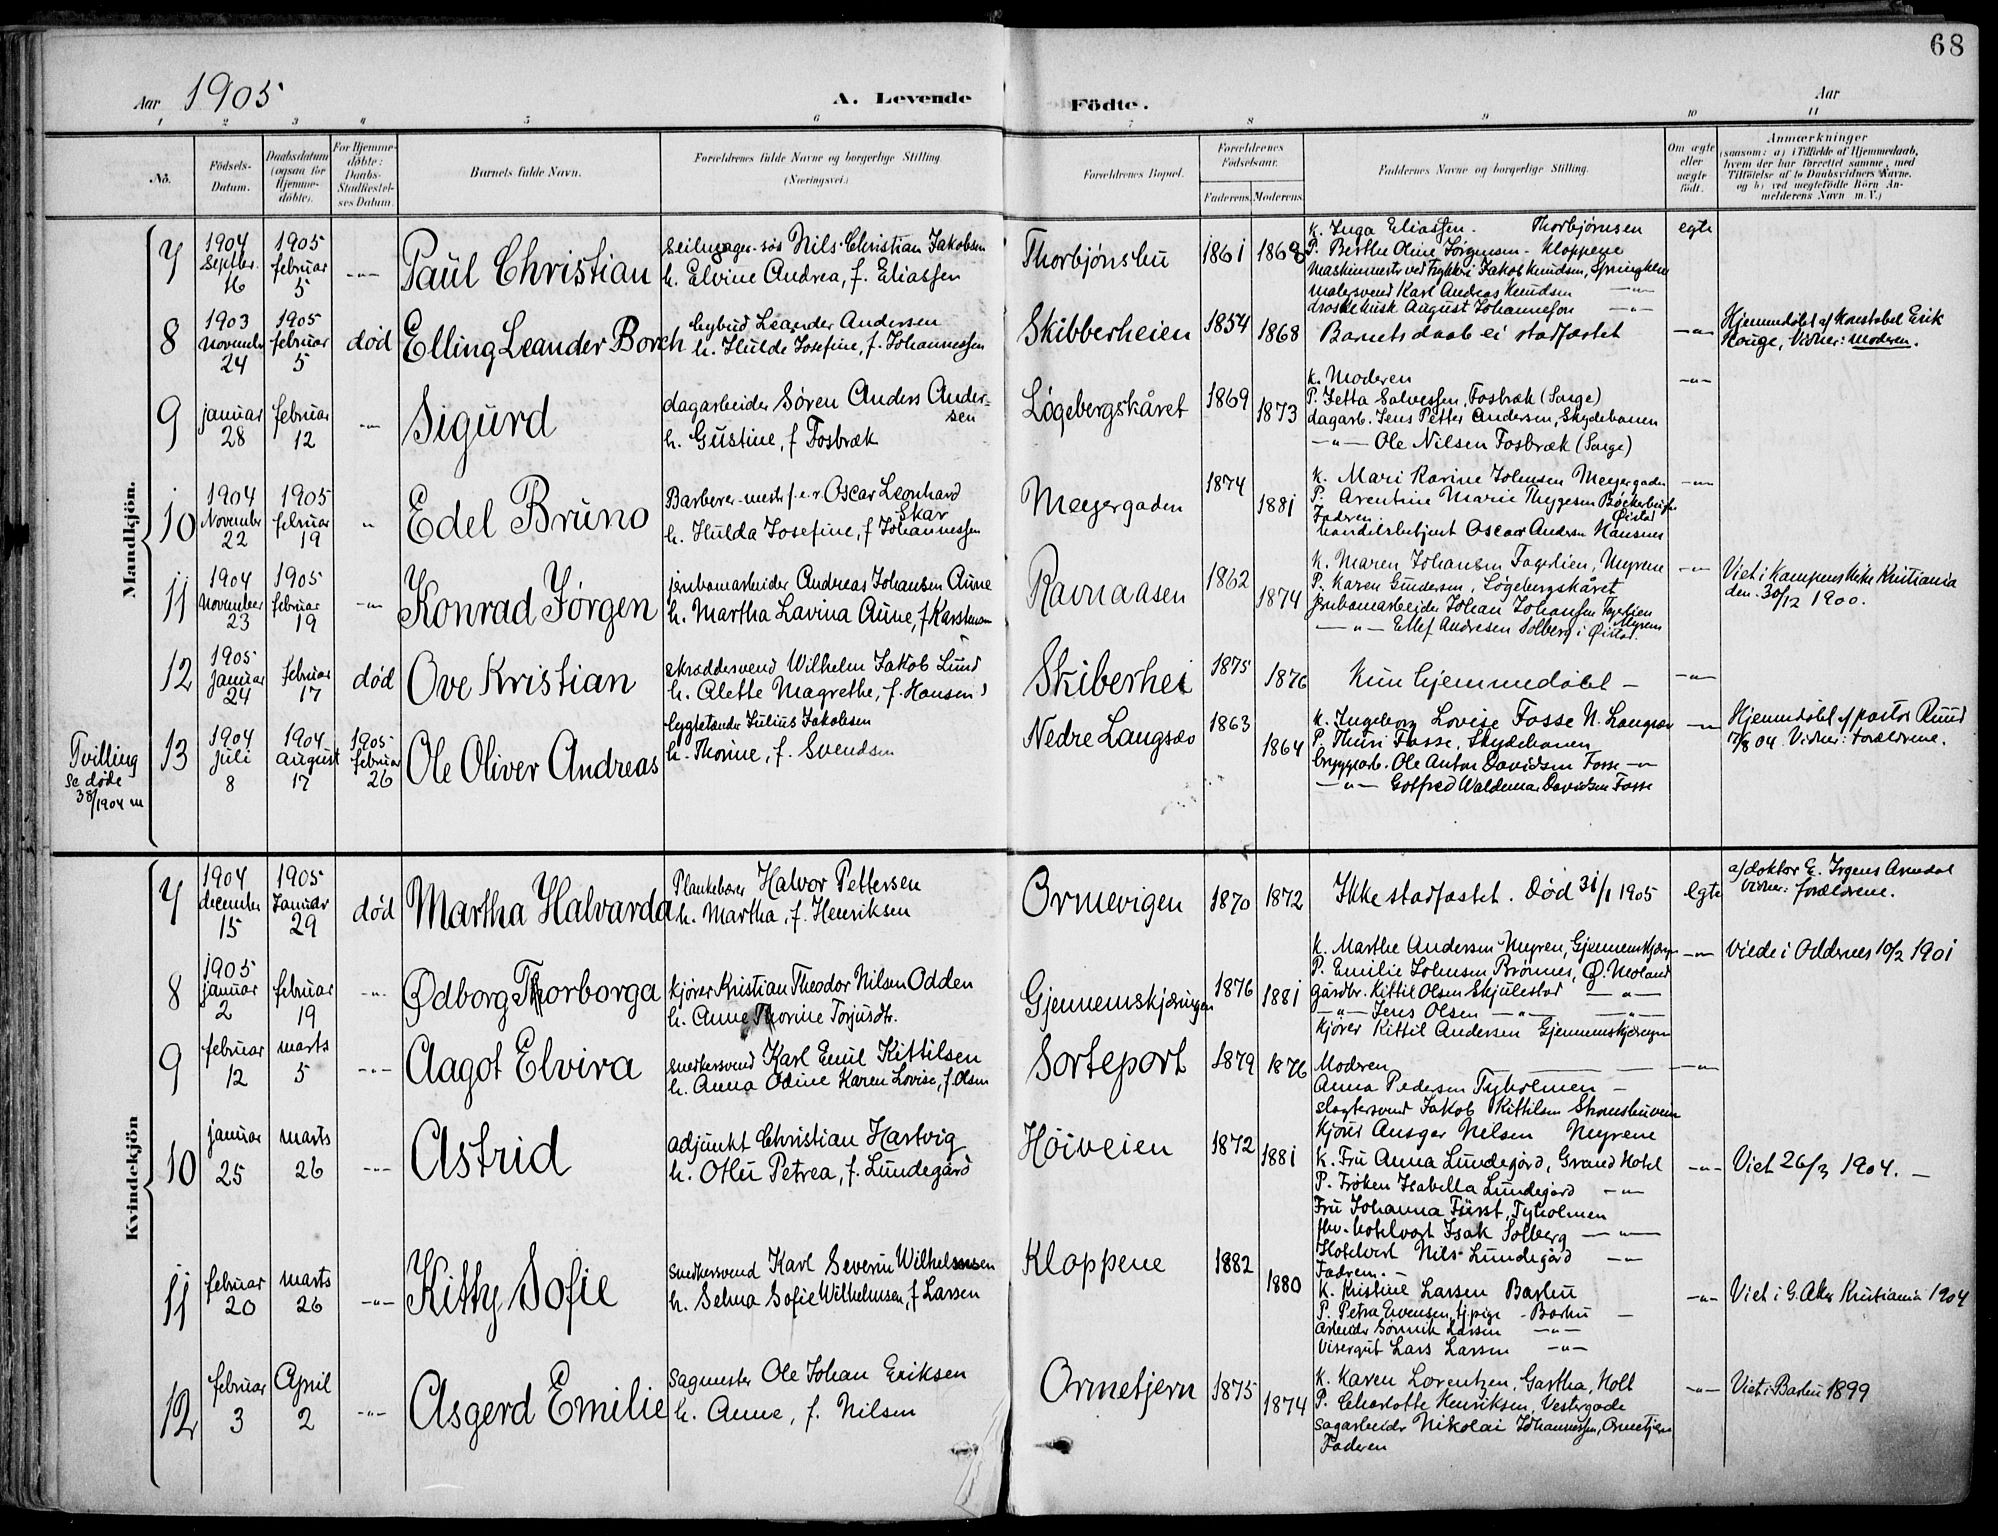 68
Aar 1905 A. Levende Födte. Aar
1 2 3 4 5 6 7 8 9 10 11
No.
Födsels-Datum.
Daabsdatum (ogsaa for Hjemme-döbte).
For Hjemme-döbte: Daabs-Stadfæstel-ses Datum.
Barnets fulde Navn.
Forældrenes fulde Navne og borgerlige Stilling. (Næringsvei.)
Forældrenes Bopæl.
Forældrenes Födselsaar.
Faderens. Moderens.
Faddernes Navne og borgerlige Stilling.
Om ægte eller uægte födt.
Anmærkninger
(saasom: a) i Tilfælde af Hjemmedaab,
hvem der har forrettet samme, med
Tilföielse af to Daabsvidners Navne.
og b) ved uægtefödte Börn An-
melderens Navn m.V.)
Mandkjön.
7
1904 Septbr. 16
1905 februar 5
-"-
Paul Christian
Nils Christian Jakobsen
h. Elvine Andrea, f. Eliassen
Thorbjønsbu
1861 1868
K. Inga Eliassen. Thorbjørnsen
P. Berthe Oline Jørgensen - Kloppene
Jakob Knudsen,
malersvend Karl Andreas Knudsen -"-
droskekusk August Johannesen -"-
egte
8
1903 november 24
1905 februar 5
død
Elling Leander Borch
bybud Leander Andersen
h. Hulda Josefine, f. Johannessen
Skibberheien
1854 1868
Barnets daab ei stadfæstet
-"-
Hjemmedøbt af Konstabel Erik
Hauge, Vidner: moderen.
9
januar 28
februar 12
-"-
Sigurd
dagarbeider Søren Anders Ander-
sen
h. Gustine, f Fosbræk
Løgebergskåret
1869 1873
K. Moderen
P. Jetta Salvessen, Fosbræk (Songe)
dagarb. Jens Petter Andersen, Skydebanen
-"- Ole Nilsen Fosbræk (Songe)
-"-
10
1904 November 22
1905 februar 19
"
Edel Bruno
Oscar Leonhard
Skar
h. Hulda Josefine, f Johannessen
Meyergaden
1874 1881
K. Mari Karine Johnsen Meyergaden
P. Arentine Marie Thygesen
Faderen
handelsbetjent Oscar Andersen
-"-
11
1904 november 23
1905 februar 19
-"-
Konrad Jørgen
jernbanearbeider Andreas Johansen Aune
h. Martha Lavina Aune, f Karstensen
Ravnaasen
1862 1874
K. Maren Johansen Fagerlien, Myrene
P. Karen Gundersen, Løgebergskåret
jernbanearbeider Johan Johansen Fagerlien
Myrene
-"- Ellef Andresen Solberg i Øistad.
-"-
Viet i Kampens kirke Kristiania
den 30/12 1900.
12
1905 januar 24
februar 17
død
Ove Kristian
skræddersvend Wilhelm Jakob Lund
h. Alette Magrethe, f. Hansen
Skiberhei
1875 1876
Kun hjemmedøbt -
-"-
Tvilling
se døde
38/1904 m
13
1904 juli 8
1904 august 17
1905 februar 26
Ole Oliver Andreas
lygtetænder Julius Jakobsen
h. Thorine, f. Svendsen
Nedre Langsæ
1863 1864
K. Ingeborg Lovise Fosse N. Langsæ
P. Thuri Fosse, Skydebanen
bryggearb. Ole Anton Davidsen Fosse -"-
-"- Gotfred Waldemar Davidsen Fosse
-"-
Hjemmedøbt af pastor Ruud
17/8 04 Vidner: forældrene.
Kvindekjön
7
1904 december 15
1905 Januar 29
død
Martha Halvarda
Plankebærer Halvor Pettersen
h. Martha, f. Henriksen
Ormevigen
1870 1872
Ikke stadfæstet. Død 31/1 1905
egte
af doktor E. Irgens Arendal
Vidner: forældrene.
8
1905 januar 2
februar 19
-"-
Ødborg Thorborga
kjører Kristian Theodor Nilsen Odden
h. Anne Thorine Torjusdtr.
Gjennemskjæringen
1876 1881
K. Marthe Andersen Myren, Gjennemskjæringen
P. Emilie Johnsen Brønnes, Ø. Moland
gårdbr. Kittil Olsen Skjulestad -"-
-"- Jens Olsen -"- -"-
kjører Kittil Andersen Gjennemskjæringen
-"-
Viede i Oddernes 10/2 1901
9
februar 12
marts 5
-"-
Aagot Elvira
snedkersvend Karl Emil Kittilsen
h. Anna Odine Karen Lovise, f. Olsen
Sorteport
1879 1876
Moderen
Anna Pedersen Tyholmen -
slagtersvend Jakob Kittilsen Strømsbuveien
kjører Ansgar Nilsen Myrene
-"-
10
januar 25
marts 26
-"-
Astrid
adjunkt Christian Hartvig
h. Othi Petrea, f. Lundegård
Høiveien
1872 1881
K. Fru Anna Lundegård, Grand Hotel
P. Frøken Isabella Lundegård -"-
Fru Johanna Fürst, Tyholmen
fhv. hotelvært Isak Solberg -"-
Hotelvert Nils Lundegård -"-
Faderen. -
-"-
Viet 26/3 1904. -
11
februar 20
marts 26
-"-
Kitty Sofie
snedkersvend Karl Severin Wilhelmsen
h. Selma Sofie Wilhelmsen, f Larsen
Kloppene
1882 1880
K. Kristine Larsen Barbu
P. Petra Evensen, tj.pige - Barbu -
arbeider Sønnik Larsen -"-
Visergut Lars Larsen -"-
-"-
Viet i G. Aker Kristiania 1904
12
februar 3
April 2
-"-
Asgerd Emilie
sagmester Ole Johan Eriksen
h. Anne, f. Nilsen
Ormetjern
1875 1874
K. Karen Lorentzen, Gartha, Holt
P. Charlotte Henriksen, Vestergade
sagarbeider Nikolai Johannessen, Ormetjern
Faderen
-"-
Viet i Barbu 1899